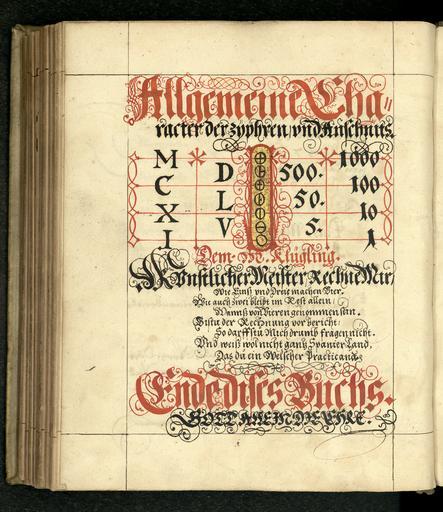 Allgemeine Cha=
racter der zyphren, vnd Anschnits.
M * D 500. * 1000
C L 50. 100
X V 5. 10
I 1
Dem. M. Klügling.
Kunstlicher Meister Rechne Mir,
Wie Eins vnd Dreÿ machen Vier.
Wie auch zweÿ bleibt im Rest allein,
Wanns von Vieren genommen sein.
Bistu der Rechnung vor bericht,
So darffstu Mich drumb fragen nicht.
Vnd weiß wol nicht gantz Spanier Land,
Das du ein Welscher Practicant.
Ende dises Buchs.
GOTT ALLEIN DIE EHRE.